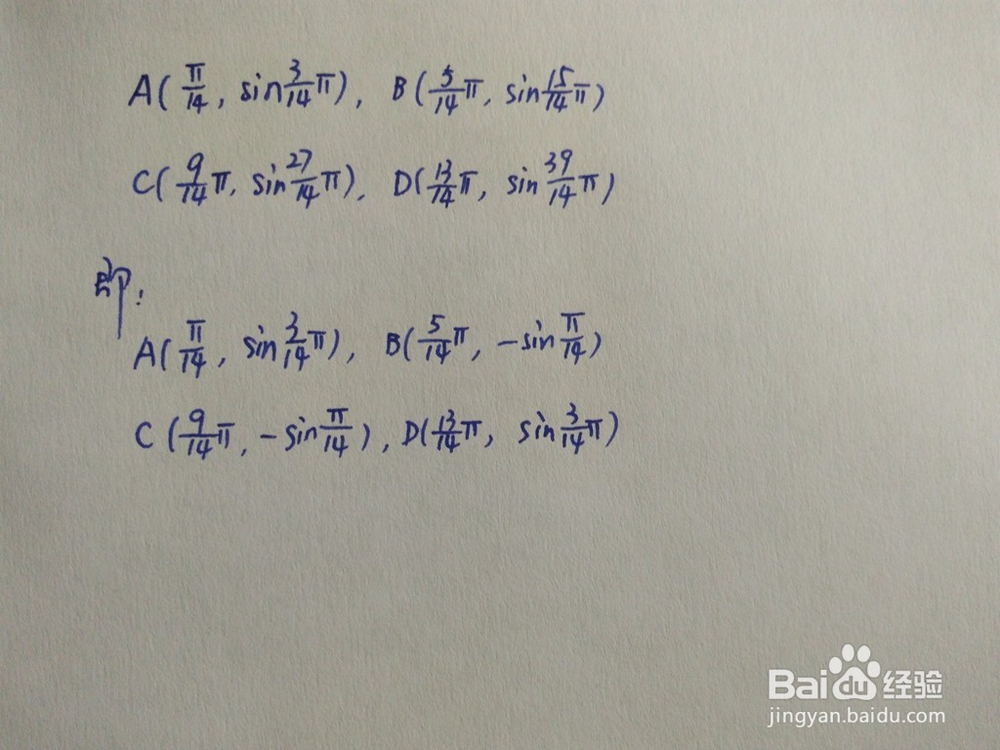 A(π/14, sin3/14π), B(5/14π, sin15/14π)
C(9/14π, sin27/14π), D(13/14π, sin39/14π)
即:
A(π/14, sin3/14π), B(5/14π, -sinπ/14)
C(9/14π, -sinπ/14), D(13/14π, sin3/14π)
Baidu经验
jingyan.baidu.com